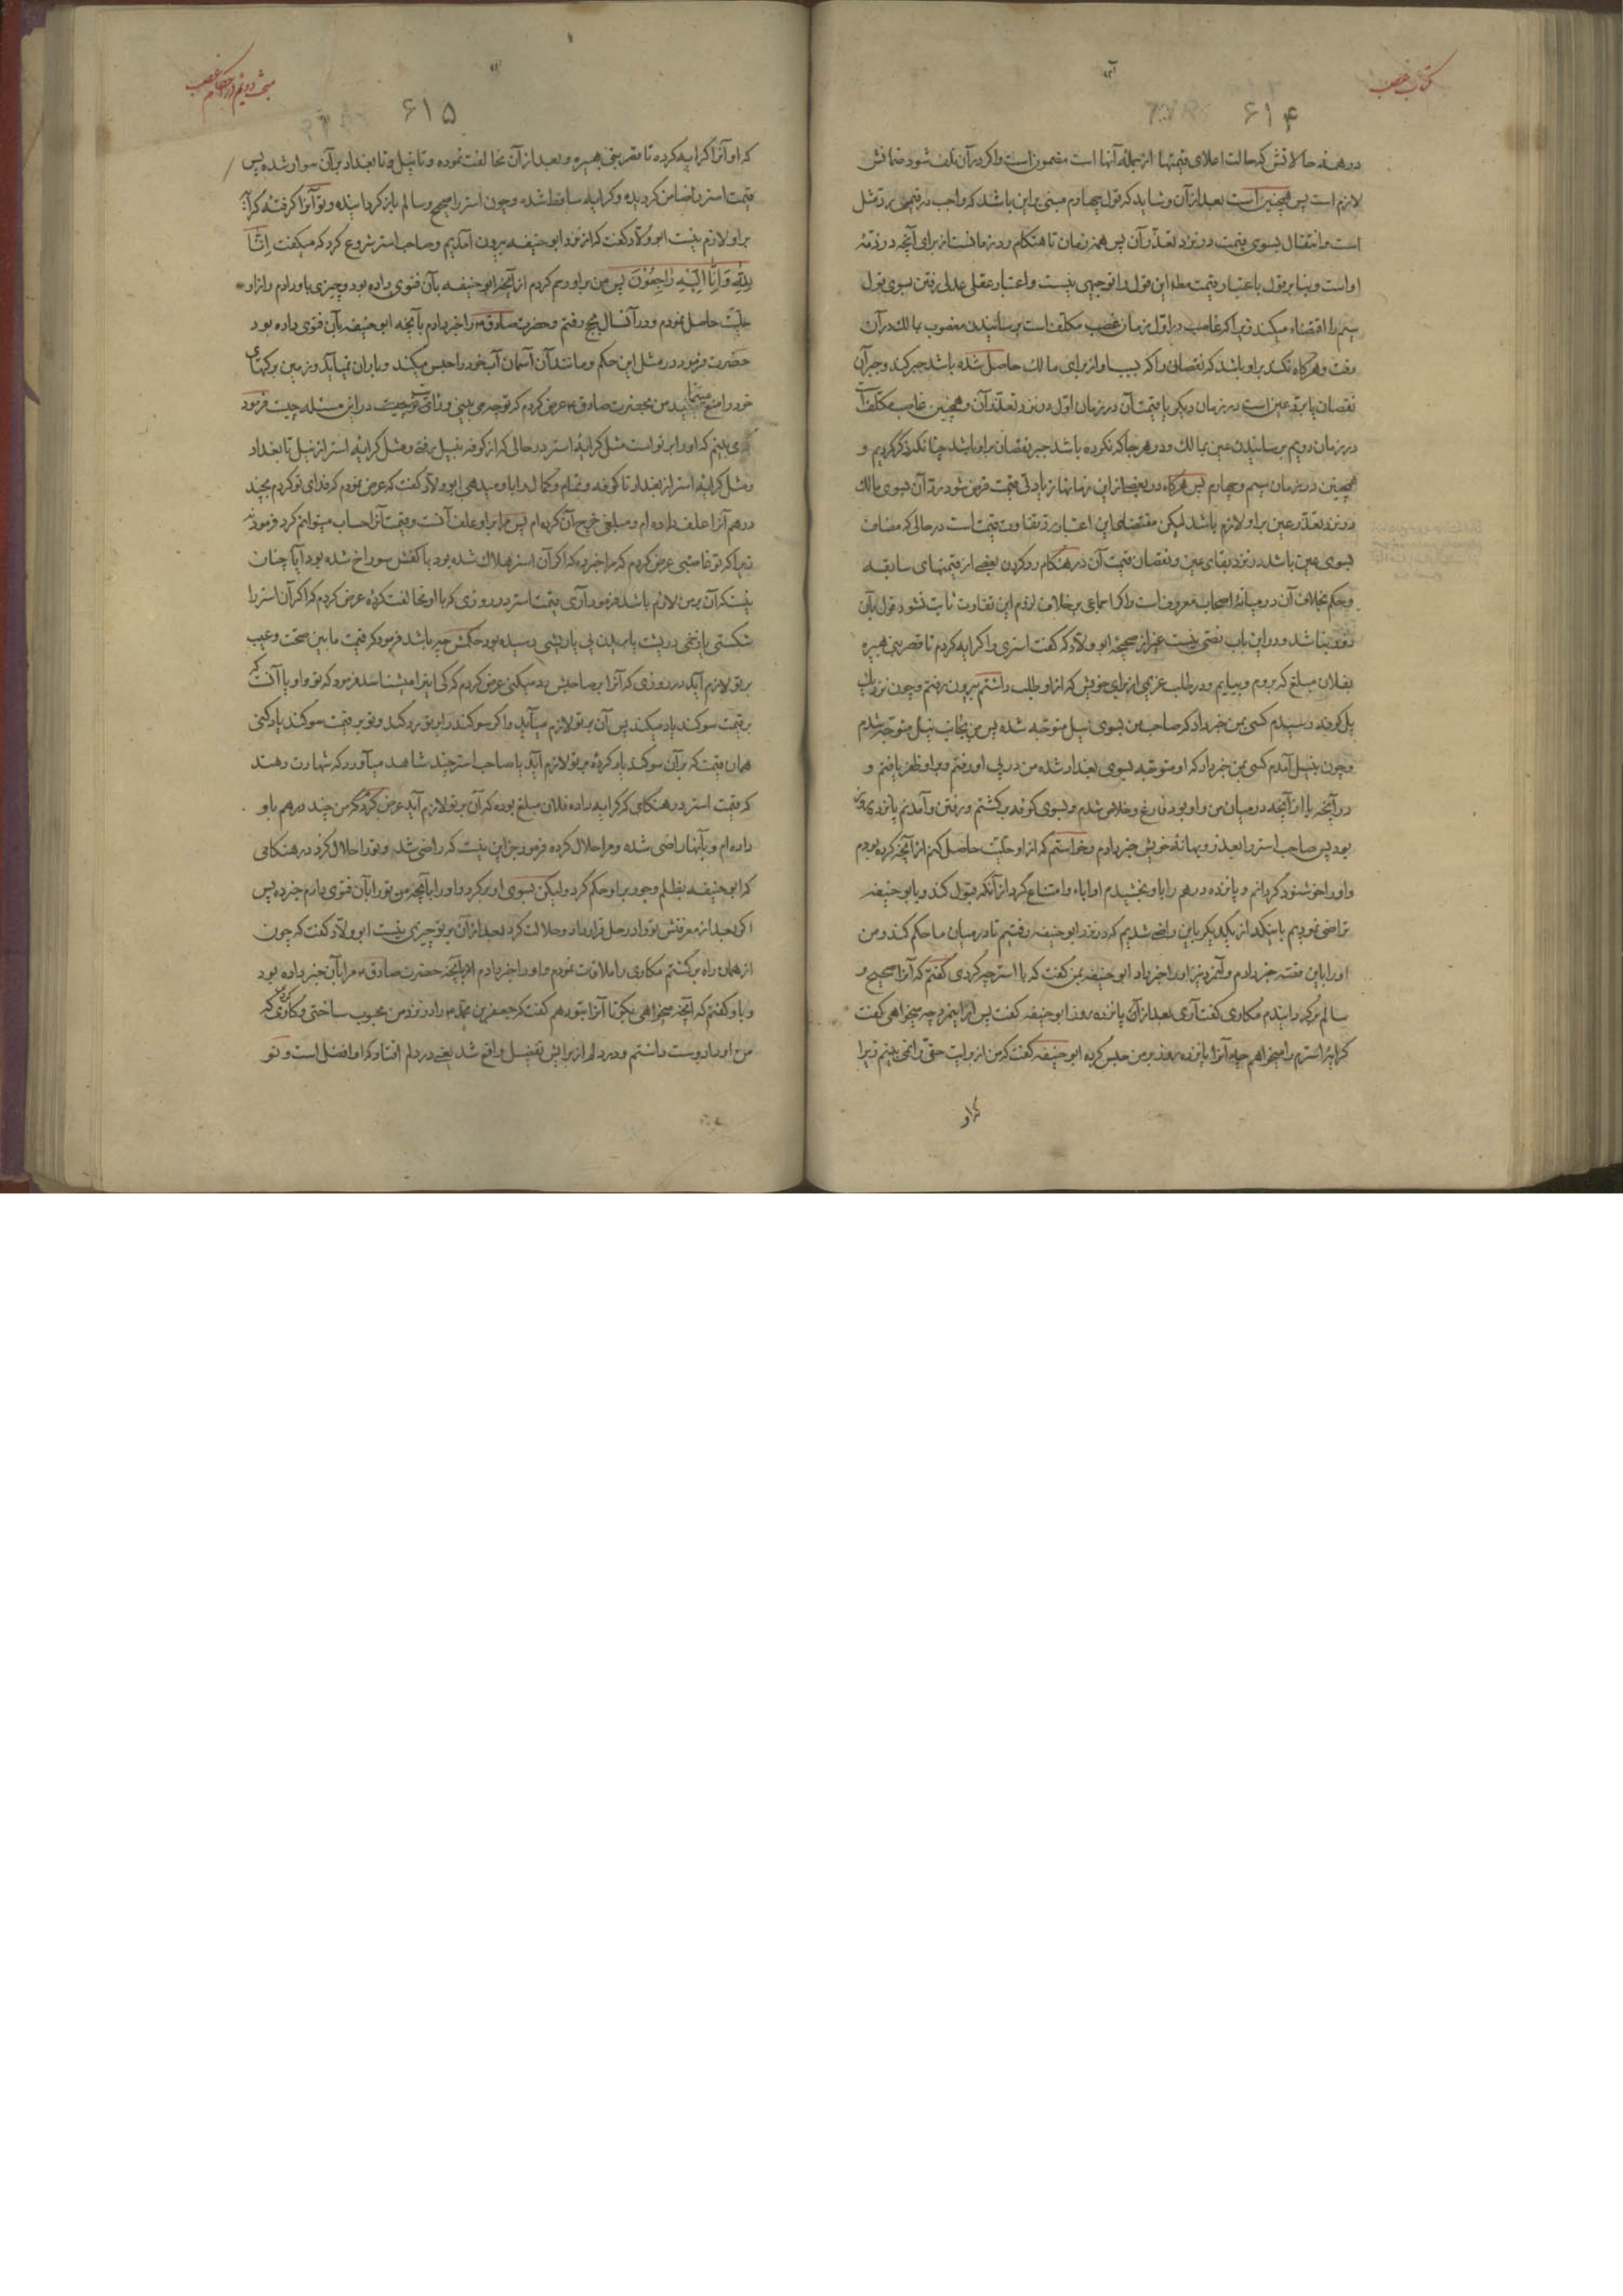 کتاب غصب
۶۱۴
در همه حالاتش که حالت اعلای قیمتها از جمله آنها است مضمون است و اگر در آن تلف شود ضمانش
لازم است پس همچنین است بعد از آن و شاید که قول چهارم مبنی بر این باشد که واجب در قیمی رد مثل
است و انتقال بسوی قیمت در نزد تعذّر آن پس همه زمان تا هنگام رد زمانست از برای آنچه در ذمّه
او است و بنا بر قول باعتبار قیمت مطلقا این قول را توجیهی نیست و اعتبار عقلی عدلی رفتن بسوی قول
سیم را اقتضاء میکند زیرا که غاصب در اول زمان غصب مکلف است برسانیدن مغصوب بمالک در آن
وقت و هرگاه نکند بر او باشد که نقصانی را که بسبب او از برای مالک حاصل شده باشد جبر کند و جبر آن
نقصان یا بردّ عین است در زمان دیگر یا قیمت آن در زمان اوّل در نزد تعذّر آن و همچنین غاصب مکلّف است
در زمان دویم برسانیدن عین بمالک و در هر جا که نکرده باشد جبر نقصان بر او باشد چنانکه ذکر کردیم و
همچنین در زمان سیم و چهارم پس هرگاه در بعضی از این زمانها زیادتی قیمت فرض شود ردّ آن بسوی مالک
در نزد تعذّر عین بر او لازم باشد لیکن مقتضای این اعتبار ردّ تفاوت قیمت است در حالی که مضاف
بسوی عین باشد در نزد بقای عین و نقصان قیمت آن در هنگام رد کردن بعضی از قیمتهای سابقه
و حکم بخلاف آن در میانه اصحاب معروف است و اگر اجماعی بر خلاف لزوم این تفاوت ثابت نشود قول بآن
دور نباشد و در این باب نصّی نیست غیر از صحیحه ابو ولّاد که گفت استری را کرایه کردم تا قصر بنی هبیره
بفلان مبلغ که بروم و بیایم و در طلب غریمی از برای خویش که از او طلب داشتم بیرون رفتم و چون نزدیک
پل کوفه رسیدم کسی بمن خبر داد که صاحب من بسوی نیل متوجّه شده پس من بجانب نیل متوجّه شدم
و چون بنیل آمدم کسی بمن خبر داد که او متوجّه بسوی بغداد شده من در پی او رفتم و بر او ظفر یافتم و
در آنچه با از آنچه در میان من و او بود فارغ و خلاص شدم و بسوی کوفه برگشتم و رفتن و آمدنم پانزده روز
بود پس صاحب استر را بعذر و بهانه خویش خبر دادم و خواستم که از او حلّیت حاصل کنم از آنچه کرده بودم
و او را خوشنود گردانم و پانزده درهم را باو بخشیدم او اباء و امتناع کرد از آنکه قبول کند و بابو حنیفه
تراضی نمودیم باینکه از یکدیگر باین راضی شدیم که در نزد ابو حنیفه رفتیم تا در میان ما حکم کند و من
او را باین قصّه خبر دادم و آن مرد نیز او را خبر داد ابو حنیفه بمن گفت که با استر چه کردی گفتم که آنرا صحیح و
سالم برگردانیدم مکاری گفت آری بعد از آن پانزده روز ابو حنیفه گفت پس از این مرد چه میخواهی گفت
کرایه استرم را میخواهم چه آنرا پانزده روز بر من حبس کرده ابو حنیفه گفت که من از برایت حقّی را نمی‌بینم زیرا
که او
مبحث دویم در احکام غصب
۶۱۵
که او آنرا کرایه کرده تا قصر بنی هبیره و بعد از آن مخالفت نموده و تا بنیل و تا بغداد بر آن سوار شده پس
قیمت استر را ضامن گردیده و کرایه ساقط شده و چون استر را صحیح و سالم باز گردانیده و تو آنرا گرفته کرایه
بر او لازم نیست ابو ولّاد گفت که از نزد ابو حنیفه بیرون آمدیم و صاحب استر شروع کرد که میگفت اِنّا
لِلّهِ وَاِنّا اِلَیْهِ راجِعُونَ پس من بر او رحم کردم از آنچه ابو حنیفه بآن فتوی داده بود و چیزی باو دادم و از او
حلّیت حاصل نمودم و در آنسال بحج رفتم و حضرت صادق ع را خبر دادم بآنچه ابو حنیفه بآن فتوی داده بود
حضرت فرمود در مثل این حکم و مانند آن آسمان آب خود را حبس میکند و باران نمیآید و زمین برکتهای
خود را منع مینماید من بحضرت صادق ع عرض کردم که تو چه می بینی و رای تو چیست در این مسئله چیست فرمود
که می بینم که او را بر تو است مثل کرایه استر در حالی که از کوفه بنیل رفتی و مثل کرایه استر از نیل تا بغداد
و مثل کرایه استر از بغداد تا کوفه و تمام و کمال را باو میدهی ابو ولّاد گفت که عرض نمودم که فدای تو گردم بچند
درهم آنرا علف داده ام و مبلغی خرج آن کرده ام پس مرا بر او علف آنست و قیمت آنرا حساب میتوانم کرد فرمود نه
زیرا که تو غاصبی عرض کردم که مرا خبر ده که اگر آن استر هلاک شده بود یا کفش سوراخ شده بود آیا چنان
نیست که آن بر من لازم باشد فرمود آری قیمت استر در روزی که با او مخالفت کرده عرض کردم که اگر آن استر را
شکستی یا زخمی در پشت یا بریدن پی یا ریشی رسیده بود حکمش چه باشد فرمود که قیمت ما بین صحّت و عیب
بر تو لازم آید در روزی که آنرا بصاحبش رد میکنی عرض کردم که کی اینرا میشناسد فرمود که تو و او یا آنست که
بر قیمت سوگند یاد میکند پس آن بر تو لازم میآید و اگر سوگند را بر تو رد کند و تو بر قیمت سوگند یاد کنی
همان قیمت که بر آن سوگند یاد کرده بر تو لازم آید یا صاحب استر چند شاهد میآورد که شهادت دهند
که قیمت استر در هنگامی که کرایه داده فلان مبلغ بوده که آن بر تو لازم آید عرض کردم که من چند درهم باو
داده ام و بآنها راضی شده و مرا حلال کرده فرمود جز این نیست که راضی شد و تو را حلال کرد در هنگامی
که ابو حنیفه بظلم و جور بر او حکم کرد ولیکن بسوی او برگرد و او را بآنچه من تو را بآن فتوی دادم خبر ده پس
اگر بعد از معرفتش تو را در حل قرار داد و حلالت کرد بعد از آن بر تو چیزی نیست ابو ولّاد گفت که چون
از همان راه برگشتم مکاری را ملاقات نمودم و او را خبر دادم بآنچه حضرت صادق ع مرا بآن خبر داده بود
و باو گفتم که آنچه میخواهی بگو تا آنرا بتو دهم گفت که جعفر بن محمّد ع را در نزد من محبوب ساختی و کاری کردی که
من او را دوست داشتم و در دلم از برایش تفضیل واقع شد یعنی در دلم افتاد که او افضل است و تو